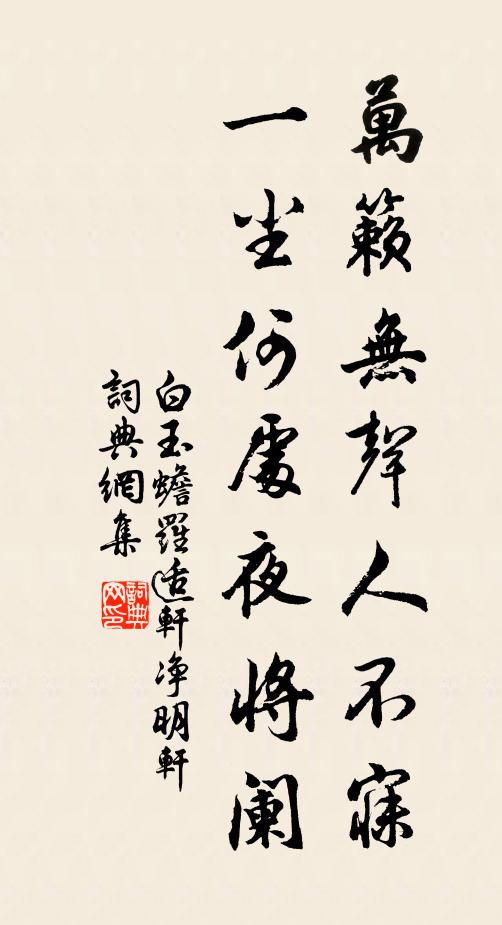 萬籟無聲人不寐
一坐何處夜將闌
白玉蟾羅适軒净明軒
詞典網集
詞典網印